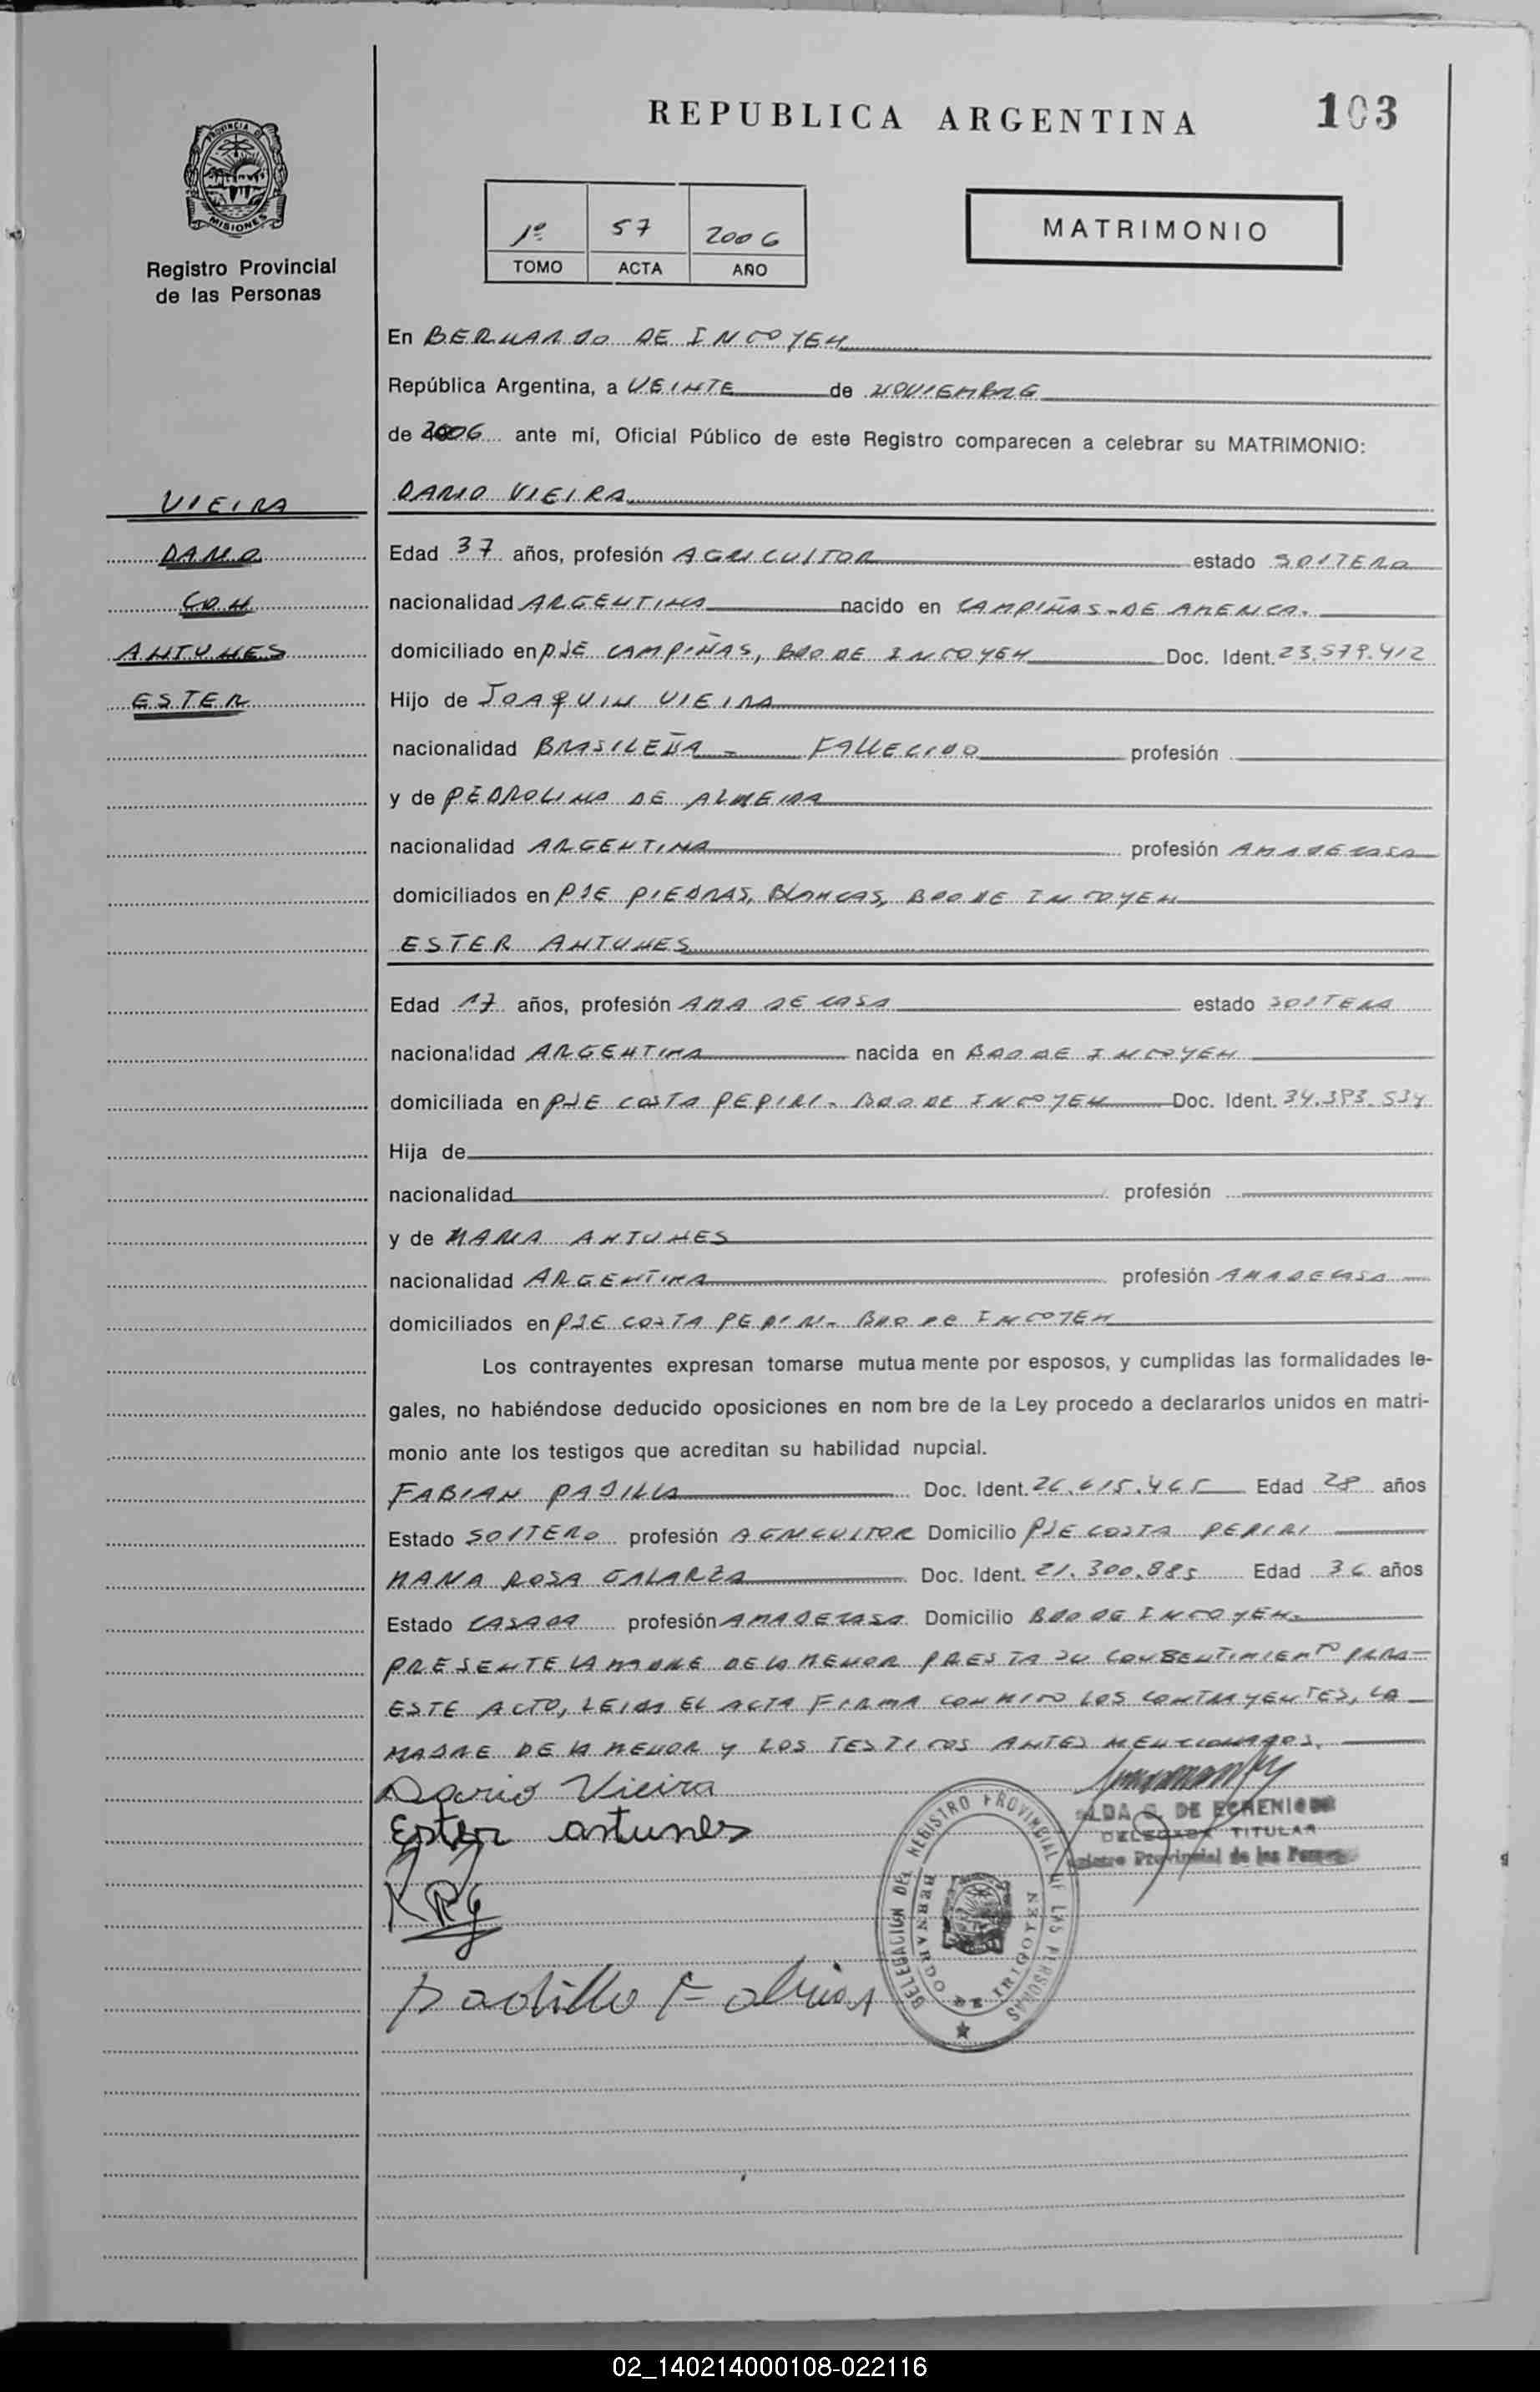 REPUBLICA ARGENTINA
103
PROVINCIA DE
MISIONES
Registro Provincial
de las Personas
1º 57 2006
TOMO ACTA AÑO
MATRIMONIO
En BERNARDO DE IRIGOYEN
República Argentina, a VEINTE de NOVIEMBRE
de 2006 ante mí, Oficial Público de este Registro comparecen a celebrar su MATRIMONIO:
VIEIRA
DARIO
CON
ANTUNES
ESTER
DARIO VIEIRA
Edad 37 años, profesión AGRICULTOR estado SOLTERO
nacionalidad ARGENTINA nacido en CAMPIÑAS-DE AMERICA.
domiciliado en PJE CAMPIÑAS, BDO DE IRIGOYEN Doc. Ident. 23.579.412
Hijo de JOAQUIN VIEIRA
nacionalidad BRASILEÑA - FALLECIDO profesión
y de PEDROLINA DE ALMEIDA
nacionalidad ARGENTINA profesión AMA DE CASA
domiciliados en PJE PIEDRAS BLANCAS, BDO DE IRIGOYEN
ESTER ANTUNES
Edad 17 años, profesión AMA DE CASA estado SOLTERA
nacionalidad ARGENTINA nacida en BDO DE IRIGOYEN
domiciliada en PJE COSTA PEPIRI - BDO DE IRIGOYEN Doc. Ident. 34.393.534
Hija de
nacionalidad profesión
y de MARIA ANTUNES
nacionalidad ARGENTINA profesión AMA DE CASA
domiciliados en PJE COSTA PEPIRI - BDO DE IRIGOYEN
Los contrayentes expresan tomarse mutua mente por esposos, y cumplidas las formalidades le-
gales, no habiéndose deducido oposiciones en nom bre de la Ley procedo a declararlos unidos en matri-
monio ante los testigos que acreditan su habilidad nupcial.
FABIAN PADILLA Doc. Ident. 26.615.465 Edad 28 años
Estado SOLTERO profesión AGRICULTOR Domicilio PJE COSTA PEPIRI
MARIA ROSA GALARZA Doc. Ident. 21.300.885 Edad 36 años
Estado CASADA profesión AMA DE CASA Domicilio BDO DE IRIGOYEN.
PRESENTE LA MADRE DE LA MENOR PRESTA SU CONSENTIMIENTO PARA
ESTE ACTO, LEIDA EL ACTA FIRMA CONMIGO LOS CONTRAYENTES, LA
MADRE DE LA MENOR Y LOS TESTIGOS ANTES MENCIONADOS.
Dario Vieira
Ester antunes
MRG
Padilla Fabian
DELEGACION DEL REGISTRO PROVINCIAL DE LAS PERSONAS
BERNARDO DE IRIGOYEN
DE ECHENIQUE
DELEGADA TITULAR
Registro Provincial de las Personas
02_140214000108-022116